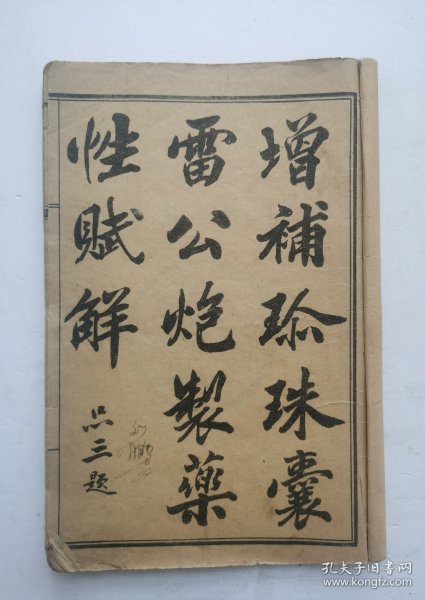 增補珎珠囊
雷公炮製藥
性賦觧
品三題
孔夫子旧书网
www.kongfz.com